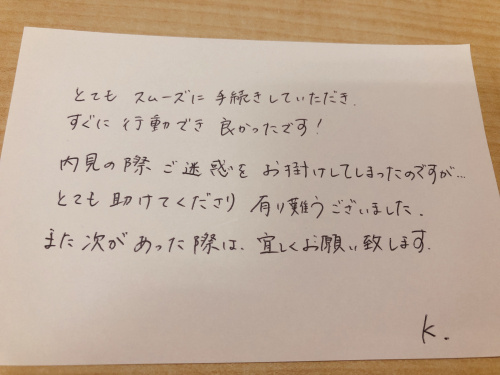 とても スムーズに 手続きしていただき、
すぐに 行動でき 良かったです！
内見の際 ご迷惑を お掛けしてしまったのですが…
とても 助けてくださり 有り難うございました。
また 次が あった際は、宜しくお願い致します。
K.